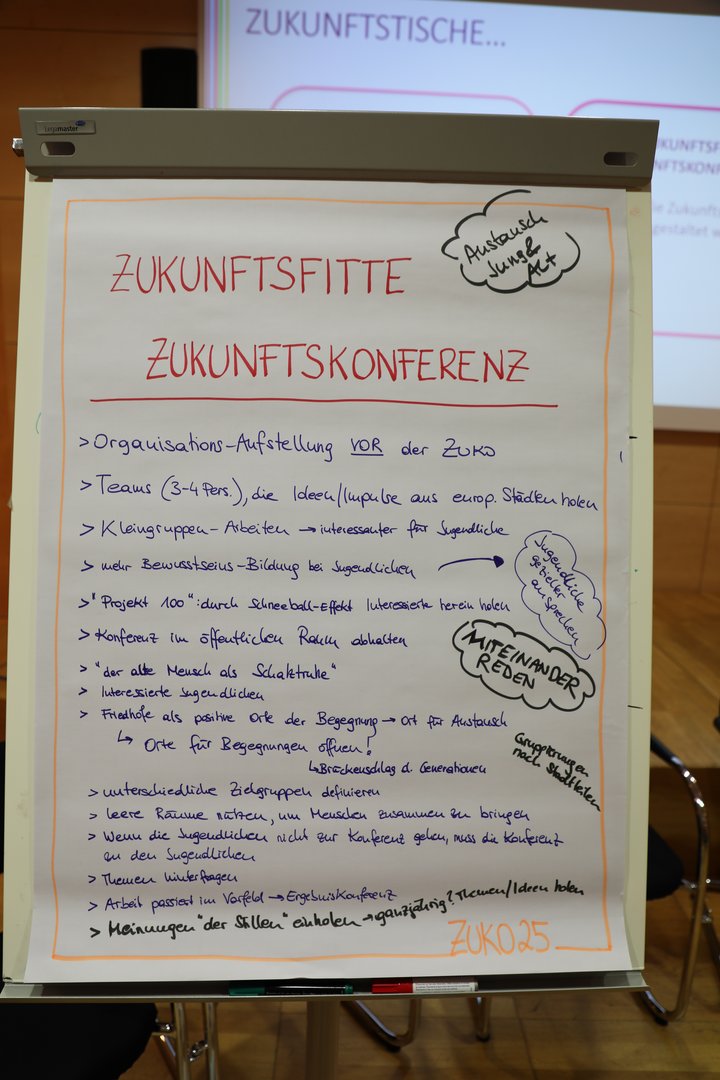 ZUKUNFTSTISCHE...
Legamaster
Austausch
Jung &
Alt
ZUKUNFTSFITTE
ZUKUNFTSKONFERENZ
> Organisations-Aufstellung VOR der ZUKO
> Teams (3-4 Pers.), die Ideen/Impulse aus europ. Städten holen
> Kleingruppen-Arbeiten → interessanter für Jugendliche
> mehr Bewusstseins-Bildung bei Jugendlichen →
Jugendliche
gezielter
ansprechen
> "Projekt 100": durch Schneeball-Effekt Interessierte herein holen
> Konferenz im öffentlichen Raum abhalten
MITEINANDER
REDEN
> "der alte Mensch als Schatztruhe"
> Interessierte Jugendlichen
> Friedhöfe als positive Orte der Begegnung → Ort für Austausch
↳ Orte für Begegnungen öffnen!
↳ Brückenschlag d. Generationen
Gruppierungen
nach Stadtteilen
> unterschiedliche Zielgruppen definieren
> leere Räume nützen, um Menschen zusammen zu bringen
> Wenn die Jugendlichen nicht zur Konferenz gehen, muss die Konferenz
zu den Jugendlichen
> Themen hinterfragen
> Arbeit passiert im Vorfeld → Ergebniskonferenz
> Meinungen "der Stillen" einholen → ganzjährig? Themen/Ideen holen
ZUKO25